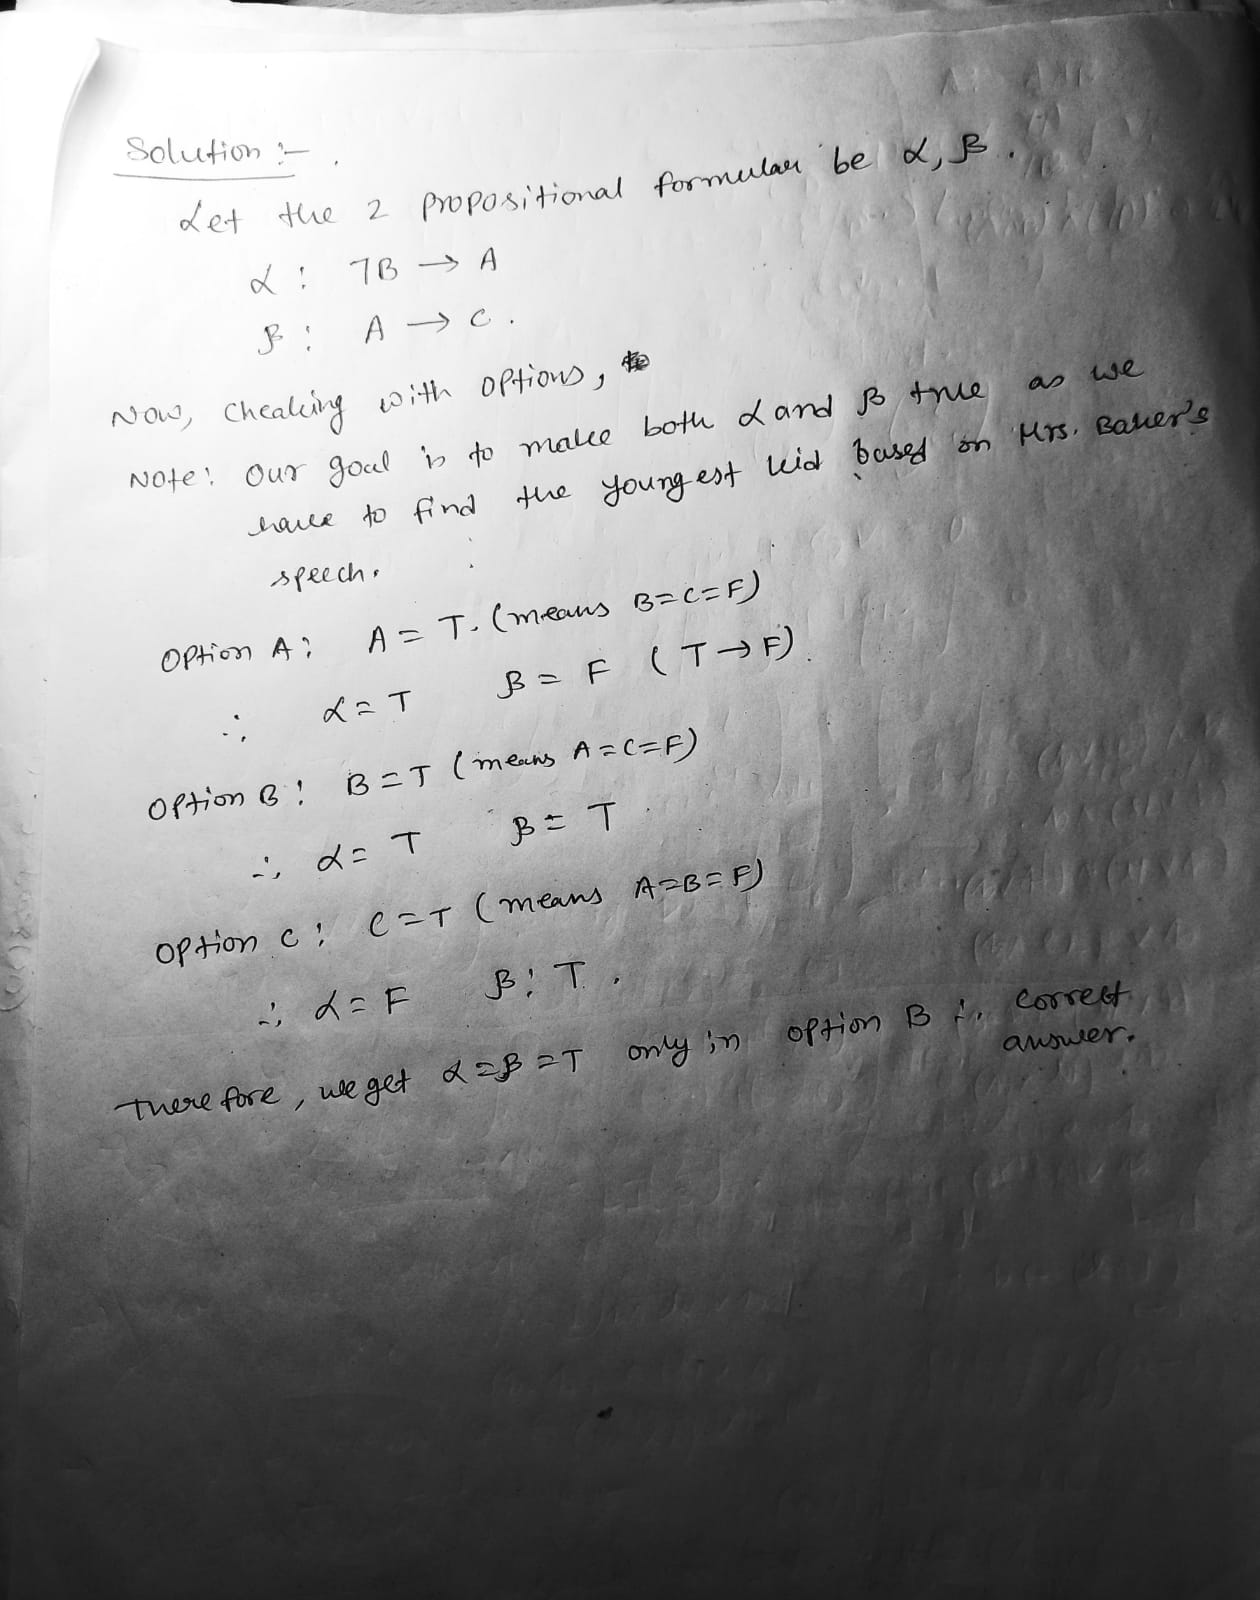 Solution :-
Let the 2 propositional formular be α, β.
α : ¬B → A
β : A → C.
Now, Cheaking with options,
Note: Our goal is to make both α and β true as we
have to find the youngest kid based on Mrs. Baker's
speech.
Option A: A = T. (means B=C=F)
∴ α = T β = F (T → F).
Option B: B = T (means A=C=F)
∴, α = T β = T
option C: C=T (means A=B=F)
∴, α = F β: T.
Therefore, we get α=β=T only in option B is correct
answer.